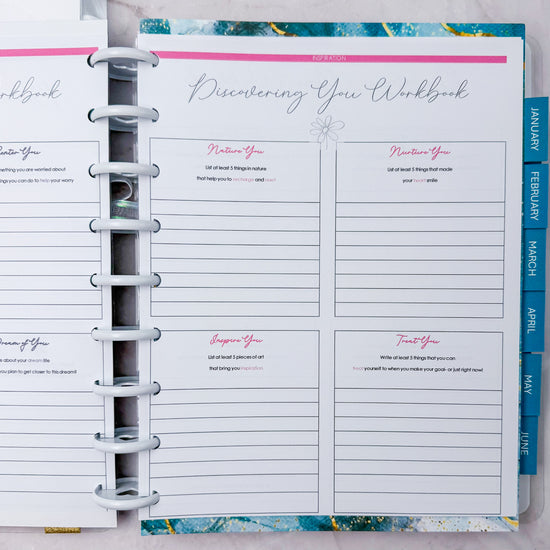 orkbook
enter You
omething you are worried about
ings you can do to help your worry
ream of You
s about your dream life
you plan to get closer to this dream!!
INSPIRATION
Discovering You Workbook
Nature You
List at least 5 things in nature
that help you to recharge and
Nurture You
List at least 5 things that made
your heart smile
Inspire You
List at least 5 pieces of art
that bring you inspiration
Treat You
Write at least 3 things that you can
treat yourself to when you make your goal- or just right now!
JANUARY
FEBRUARY
MARCH
APRIL
MAY
JUNE